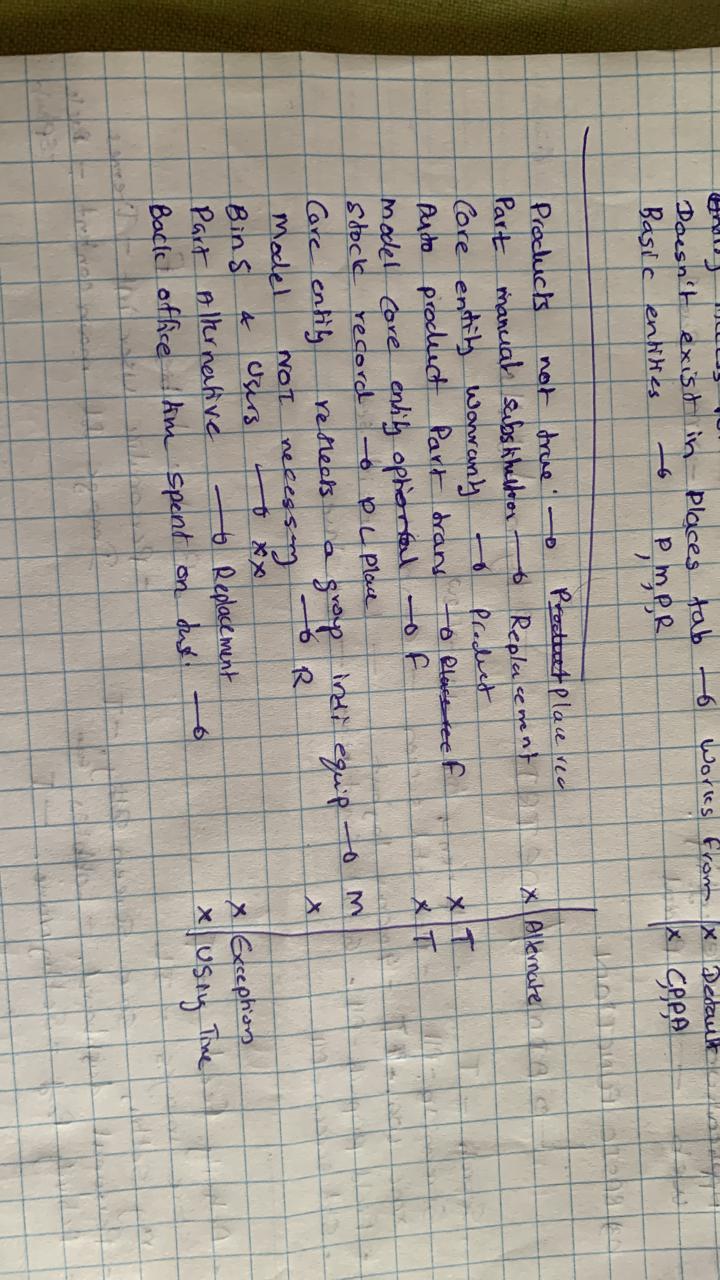 Doesn't exist in Places tab → Works from × Default
Basic entities → P, M, P, R × C,P,P,A
Products not true → Product Place rec
Part manual substitution → Replacement × Alternate
Core entity warranty → Product
Auto product Part trans → Place rec F × T
Model core entity optional → F × T
Stock record → P L Place
Core entity reflects a group indi equip → M
Model NOT necessary → R ×
Bins & Users → ××
Part Alternative → Replacement × Exception
Back office time spent on → × Using Time